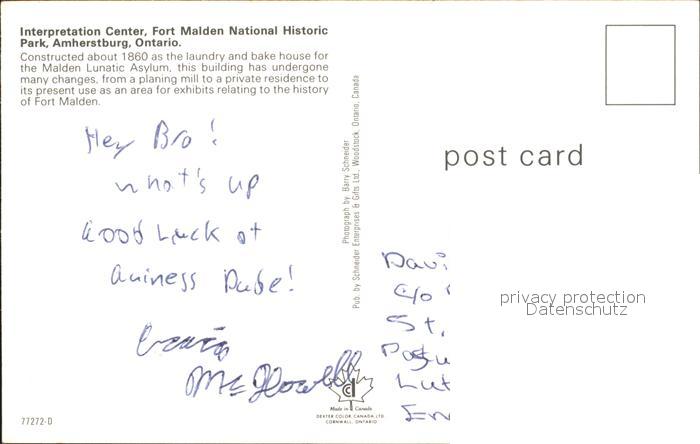 Interpretation Center, Fort Malden National Historic
Park, Amherstburg, Ontario.
Constructed about 1860 as the laundry and bake house for
the Malden Lunatic Asylum, this building has undergone
many changes, from a planing mill to a private residence to
its present use as an area for exhibits relating to the history
of Fort Malden.
Hey Bro!
what's up
Good Luck at
Guiness Dude!
77272-D
Photograph by Barry Schneider
Pub. by Schneider Enterprises & Gifts Ltd., Woodstock, Ontario, Canada
Made in Canada
DEXTER COLOR CANADA LTD.
CORNWALL, ONTARIO
post card
Davi
c/o
St.
Lut
privacy protection
Datenschutz